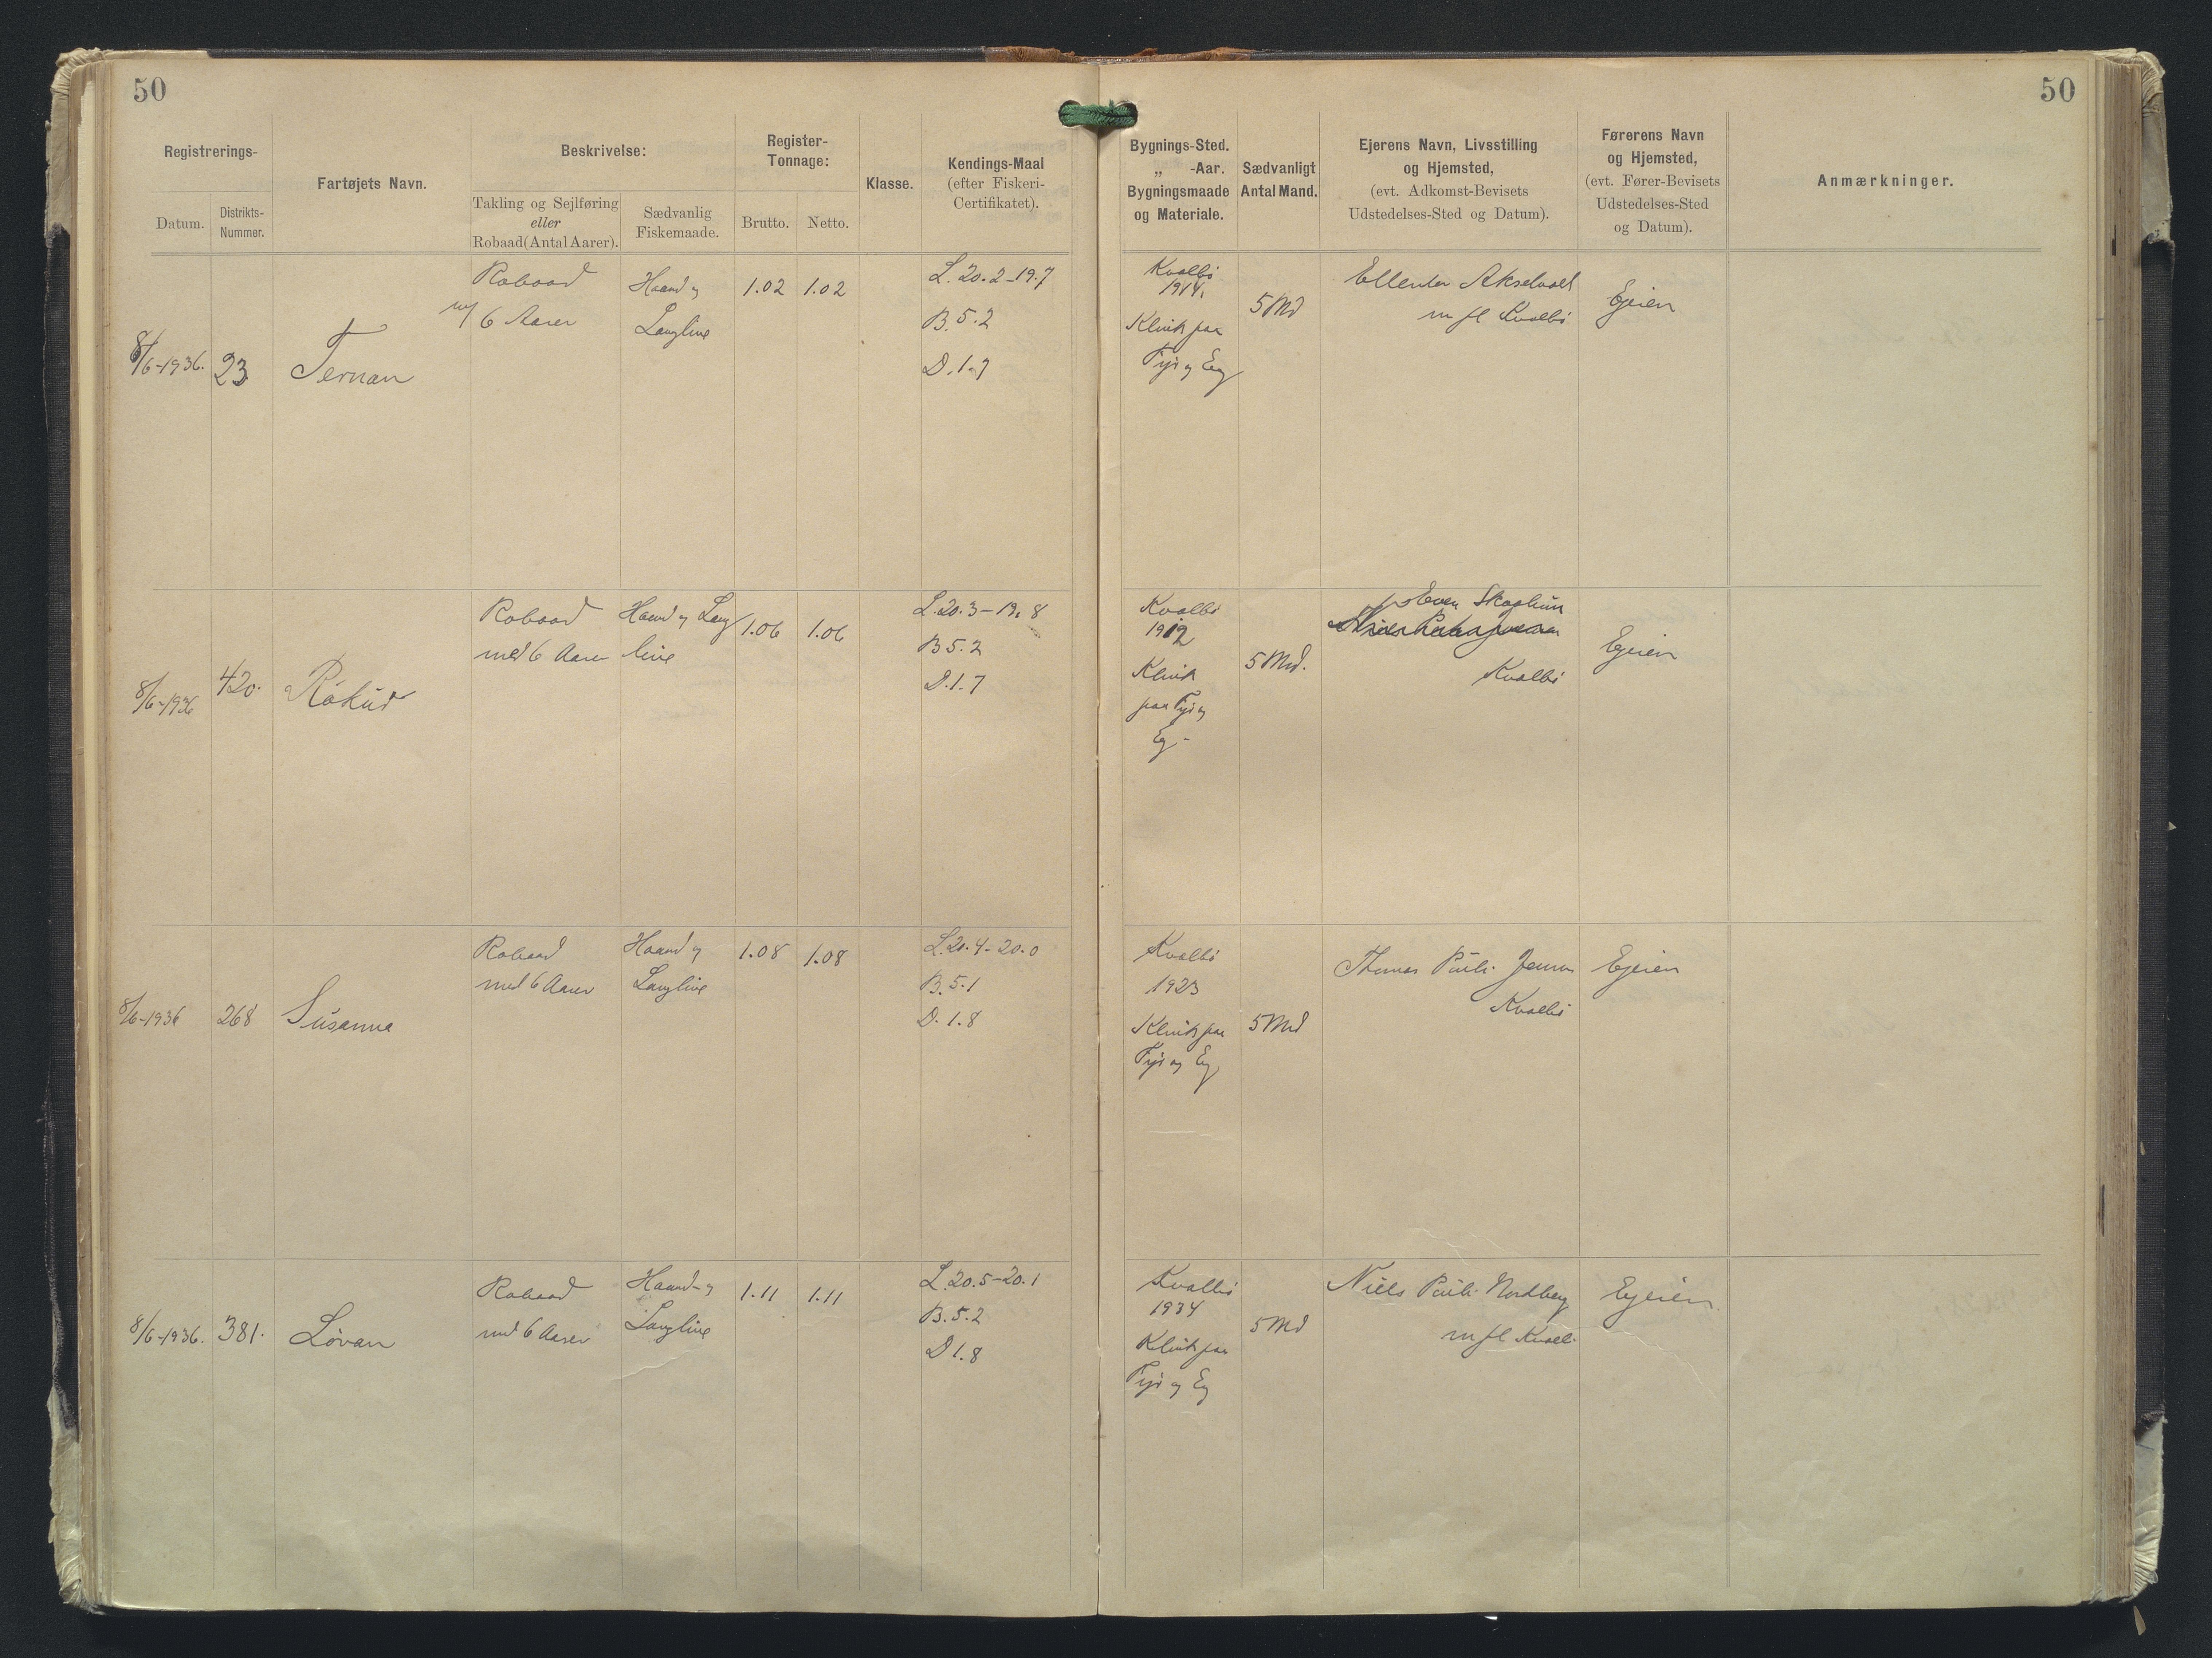 50
50
Registrerings-
Datum.
Distrikts-
Nummer.
Fartøjets Navn.
Beskrivelse:
Takling og Sejlføring
eller
Robaad (Antal Aarer).
Sædvanlig
Fiskemaade.
Register-
Tonnage:
Brutto.
Netto.
Klasse.
Kendings-Maal
(efter Fiskeri-
Certifikatet).
Bygnings-Sted.
„ -Aar.
Bygningsmaade
og Materiale.
Sædvanligt
Antal Mand.
Ejerens Navn, Livsstilling
og Hjemsted,
(evt. Adkomst-Bevisets
Udstedelses-Sted og Datum).
Førerens Navn
og Hjemsted,
(evt. Fører-Bevisets
Udstedelses-Sted
og Datum).
Anmærkninger.
8/6-1936.
23
Ternan
Robaad
m/ 6 Aarer
Haand og
Langline
1.02
1.02
L. 20.2-19.7
B. 5.2
D. 1.7
Kvalbø
1914.
Klink paa
Fyr og Eg
5 Md
m fl Kvalbø
Ejeren
8/6-1936
420.
Rókur
Robaad
med 6 Aarer
Haand og Lang
line
1.06
1.06
L. 20.3-19.8
B 5.2
D. 1.7
Kvalbø
1912
Klink
paa Fyr og
Eg-
5 Md.
Kvalbø
Ejeren
8/6-1936
268
Súsanna
Robaad
med 6 Aarer
Haand og
Langline
1.08
1.08
L. 20.4-20.0
B. 5.1
D. 1.8
Kvalbø
1923
Klink paa
Fyr og Eg
5 Md
Thomas Pauli Jensen
Kvalbø
Ejeren
8/6-1936.
381.
Lóvan
Robaad
med 6 Aarer
Haand- og
Langline
1.11
1.11
L. 20.5-20.1
B. 5.2
D 1.8
Kvalbø
1934
Klink paa
Fyr og Eg
5 Md
Niels Pauli Nordberg
m fl Kvalb.
Ejeren.